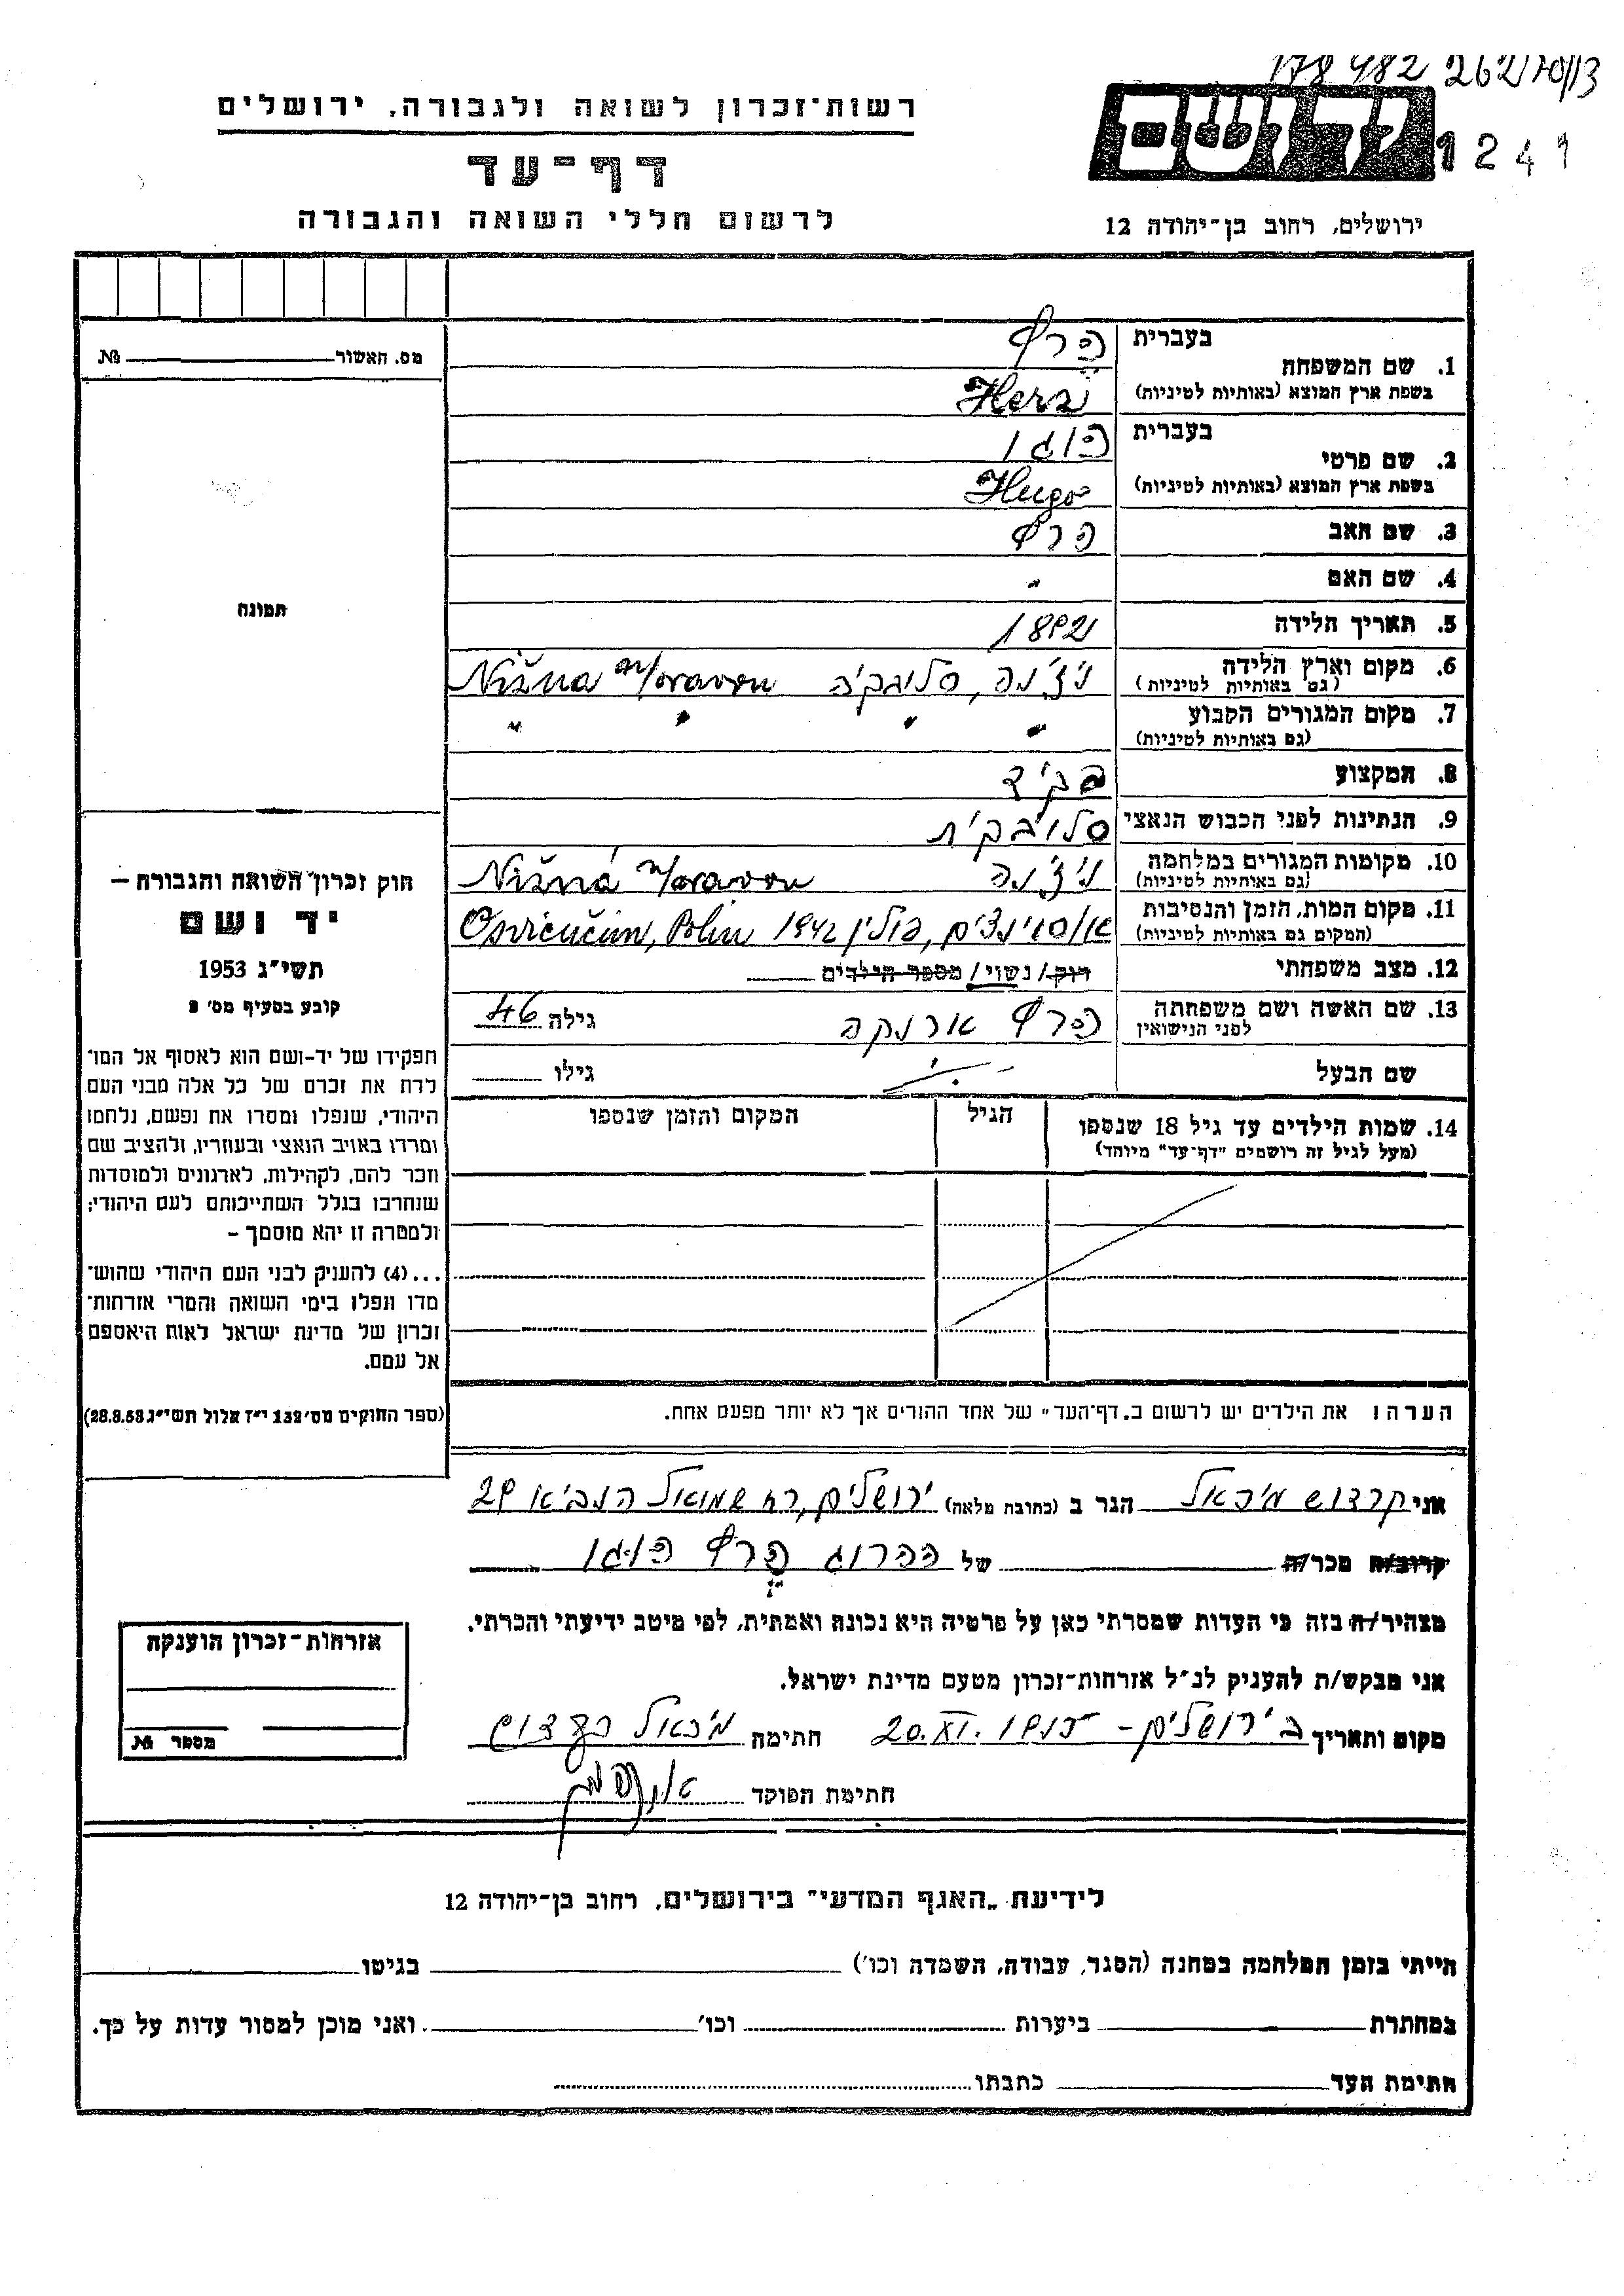 178482 262/70/13
1241
יד ושם
ירושלים, רחוב בן-יהודה 12
רשות-זכרון לשואה ולגבורה, ירושלים
דף-עד
לרשום חללי השואה והגבורה
מס. האשור № 
1. שם המשפחה בעברית הרץ
בשפת ארץ המוצא (באותיות לטיניות) Herz
2. שם פרטי בעברית הוגו
בשפת ארץ המוצא (באותיות לטיניות) Hugo
3. שם האב הרץ
4. שם האם "
5. תאריך הלידה 1892
6. מקום וארץ הלידה ניז'נה, סלובקיה Nižna
(גם באותיות לטיניות)
7. מקום המגורים הקבוע " " " "
(גם באותיות לטיניות)
8. המקצוע פקיד
9. הנתינות לפני הכבוש הנאצי סלובקית
10. מקומות המגורים במלחמה ניז'נה Nižná
(גם באותיות לטיניות)
11. מקום המות, הזמן והנסיבות פולין 1942 Polin
(המקום גם באותיות לטיניות)
12. מצב משפחתי רוק/נשוי/מספר הילדים
13. שם האשה ושם משפחתה הרץ ארנקה גילה 46
לפני הנישואין
שם הבעל גילו
14. שמות הילדים עד גיל 18 שנספו הגיל המקום והזמן שנספו
(מעל לגיל זה רושמים "דף-עד" מיוחד)
הערה: את הילדים יש לרשום ב„דף-העד" של אחד ההורים אך לא יותר מפעם אחת.
תמונה
חוק זכרון השואה והגבורה –
יד ושם
תשי"ג 1953
קובע בסעיף מס' 2
תפקידו של יד-ושם הוא לאסוף אל המו־
לדת את זכרם של כל אלה מבני העם
היהודי, שנפלו ומסרו את נפשם, נלחמו
ומרדו באויב הנאצי ובעוזריו, ולהציב שם
וזכר להם, לקהילות, לארגונים ולמוסדות
שנחרבו בגלל השתייכותם לעם היהודי;
ולמטרה זו יהא מוסמך –
...(4) להעניק לבני העם היהודי שהוש־
מדו ונפלו בימי השואה והמרי אזרחות־
זכרון של מדינת ישראל לאות היאספם
אל עמם.
(ספר החוקים מס' 132 י"ז אלול תשי"ג 28.8.53)
אני קרדוש מיכאל הגר ב (כתובת מלאה) ירושלים, רח שמואל הנביא 29
קרוב/ה מכר/ה של ההרוג הרץ הוגו
מצהיר/ה בזה כי העדות שמסרתי כאן על פרטיה היא נכונה ואמתית, לפי מיטב ידיעתי והכרתי.
אני מבקש/ת להעניק לנ"ל אזרחות-זכרון מטעם מדינת ישראל.
מקום ותאריך בירושלים – 20.XI. חתימה מיכאל קרדוש
חתימת הפוקד
אזרחות-זכרון הוענקה
מספר №
לידיעת „האגף המדעי" בירושלים, רחוב בן-יהודה 12
הייתי בזמן המלחמה במחנה (הסגר, עבודה, השמדה וכו') בגיטו
במחתרת ביערות וכו' ואני מוכן למסור עדות על כך.
חתימת העד כתבתו